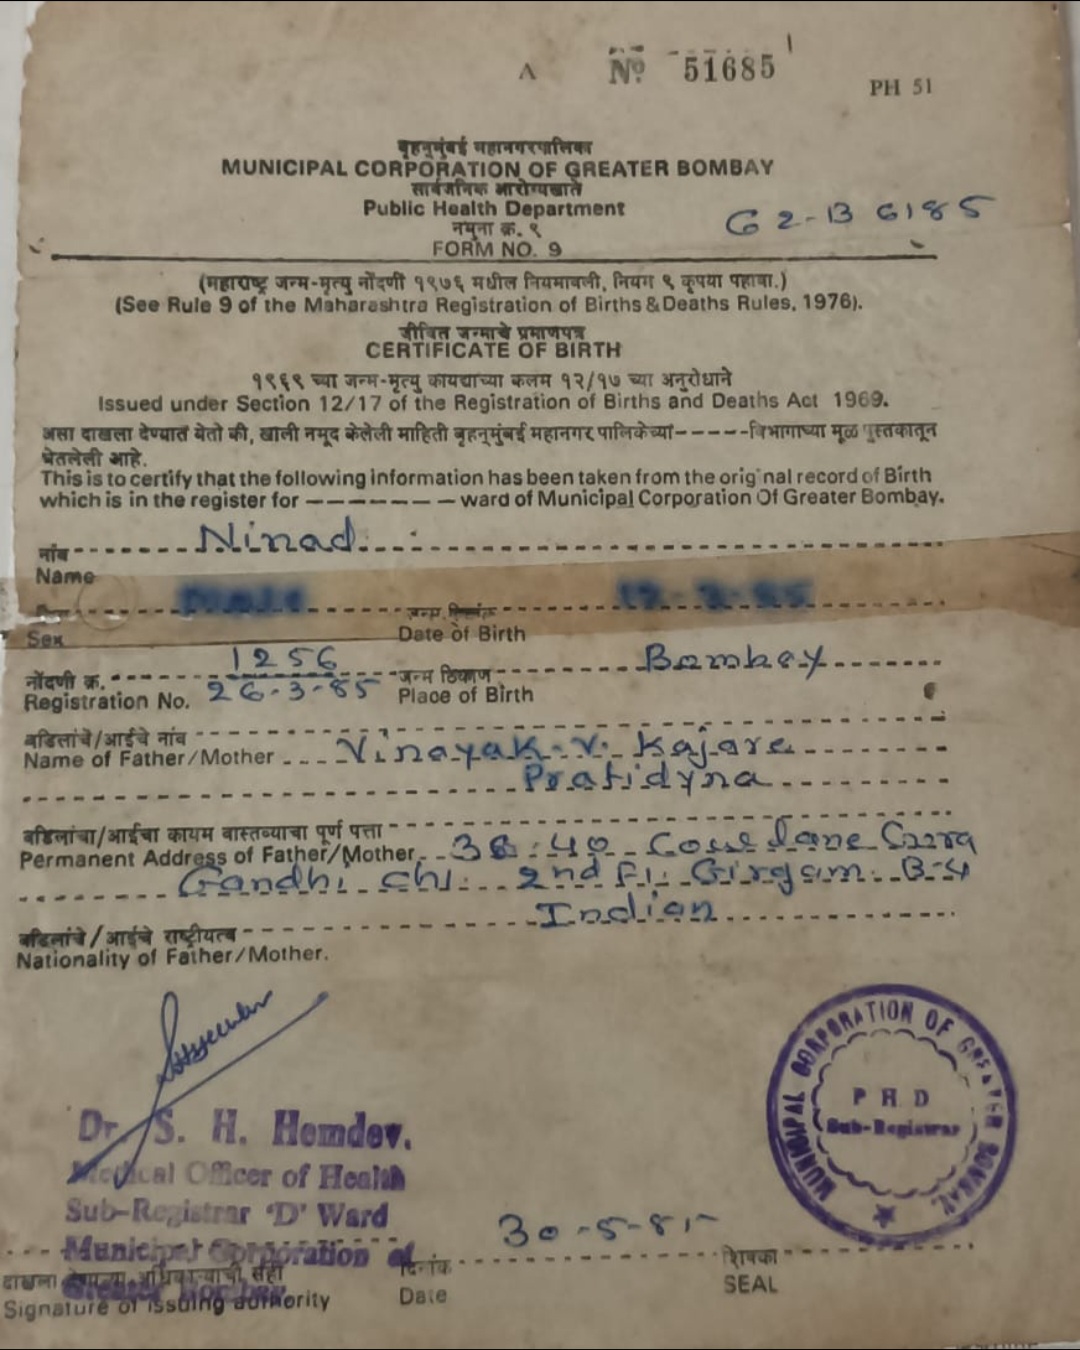 A № 51685
PH 51
बृहन्मुंबई महानगरपालिका
MUNICIPAL CORPORATION OF GREATER BOMBAY
सार्वजनिक आरोग्यखाते
Public Health Department
G2-B 6185
नमुना क्र. ९
FORM NO. 9
(महाराष्ट्र जन्म-मृत्यु नोंदणी १९७६ मधील नियमावली, नियम ९ कृपया पहावा.)
(See Rule 9 of the Maharashtra Registration of Births & Deaths Rules, 1976).
जीवित जन्माचे प्रमाणपत्र
CERTIFICATE OF BIRTH
१९६९ च्या जन्म-मृत्यु कायद्याच्या कलम १२/१७ च्या अनुरोधाने
Issued under Section 12/17 of the Registration of Births and Deaths Act 1969.
असा दाखला देण्यात येतो की, खाली नमूद केलेली माहिती बृहन्मुंबई महानगर पालिकेच्या-----विभागाच्या मूळ पुस्तकातून
घेतलेली आहे.
This is to certify that the following information has been taken from the original record of Birth
which is in the register for ------- ward of Municipal Corporation Of Greater Bombay.
नांव Ninad
Name
जन्म दिनांक
Sex Date of Birth
नोंदणी क्र. 1256 जन्म ठिकाण Bombay
Registration No. 26-3-85 Place of Birth
वडिलांचे/आईचे नांव
Name of Father/Mother Vinayak. V. Kajare
Pratidyna
वडिलांचा/आईचा कायम वास्तव्याचा पूर्ण पत्ता
Permanent Address of Father/Mother 38-40 lane
Gandhi 2nd Fl. Girgam. B-4
Indian
वडिलांचे/आईचे राष्ट्रीयत्व
Nationality of Father/Mother.
Dr. S. H. Hemdev.
Medical Officer of Health
Sub-Registrar 'D' Ward
Municipal Corporation of
Greater Bombay
MUNICIPAL CORPORATION OF GREATER BOMBAY
P H D
Sub-Registrar
30-5-85
दिनांक शिक्का
Signature of issuing authority Date SEAL